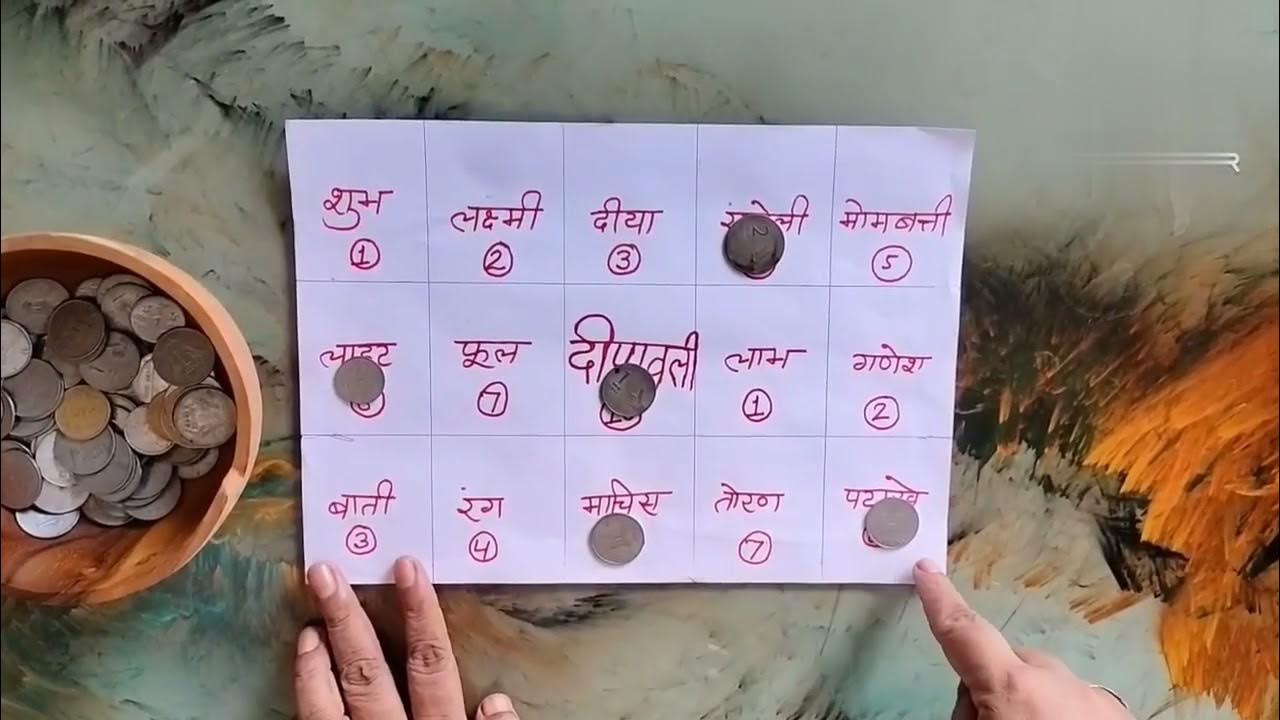 शुभ
①
लक्ष्मी
②
दीया
③
मोमबत्ती
⑤
लाइट
फूल
⑦
दीपावली
लाभ
①
गणेश
②
बाती
③
रंग
④
माचिस
तोरण
⑦
पटाखे